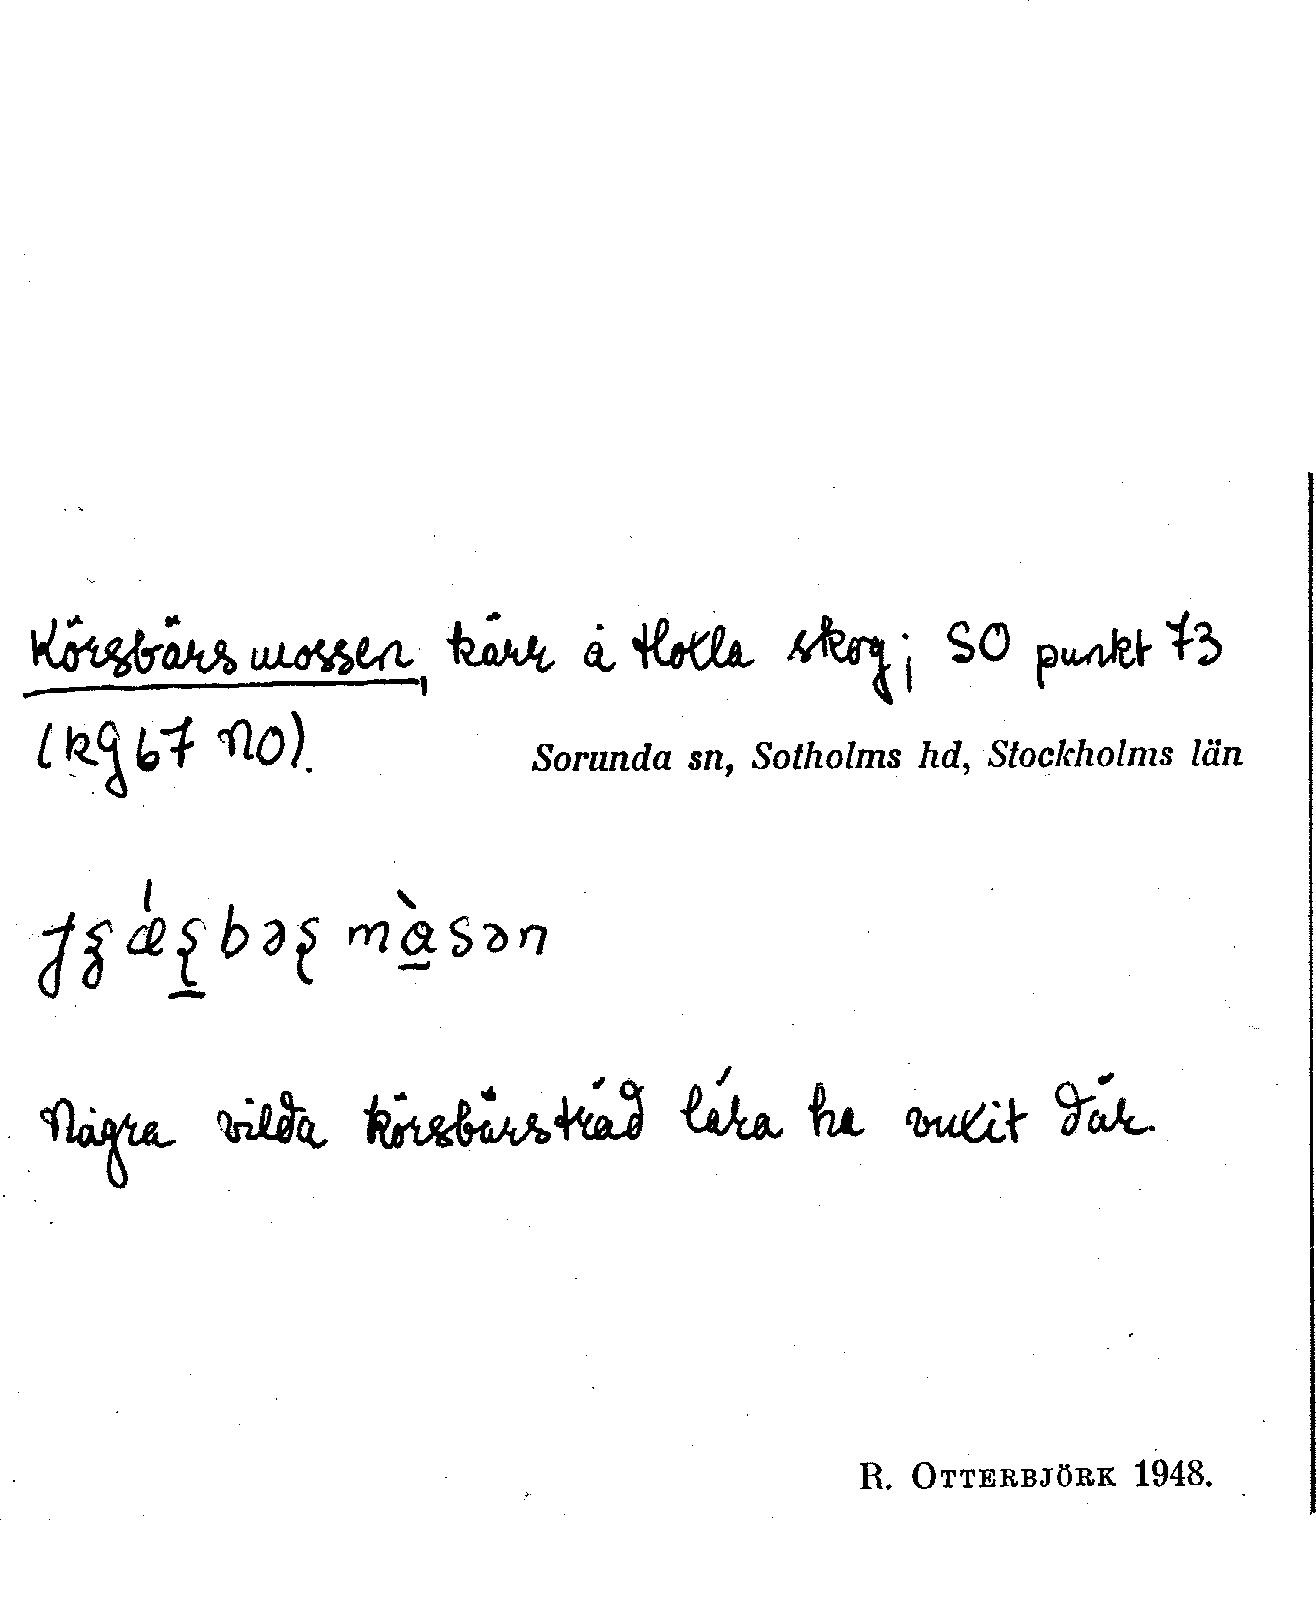 Körsbärsmossen, kärr å Hoxla skog; SO punkt 73
(kg 67 NO).
Sorunda sn, Sotholms hd, Stockholms län
Några vilda körsbärsträd lära ha vuxit där.
R. OTTERBJÖRK 1948.